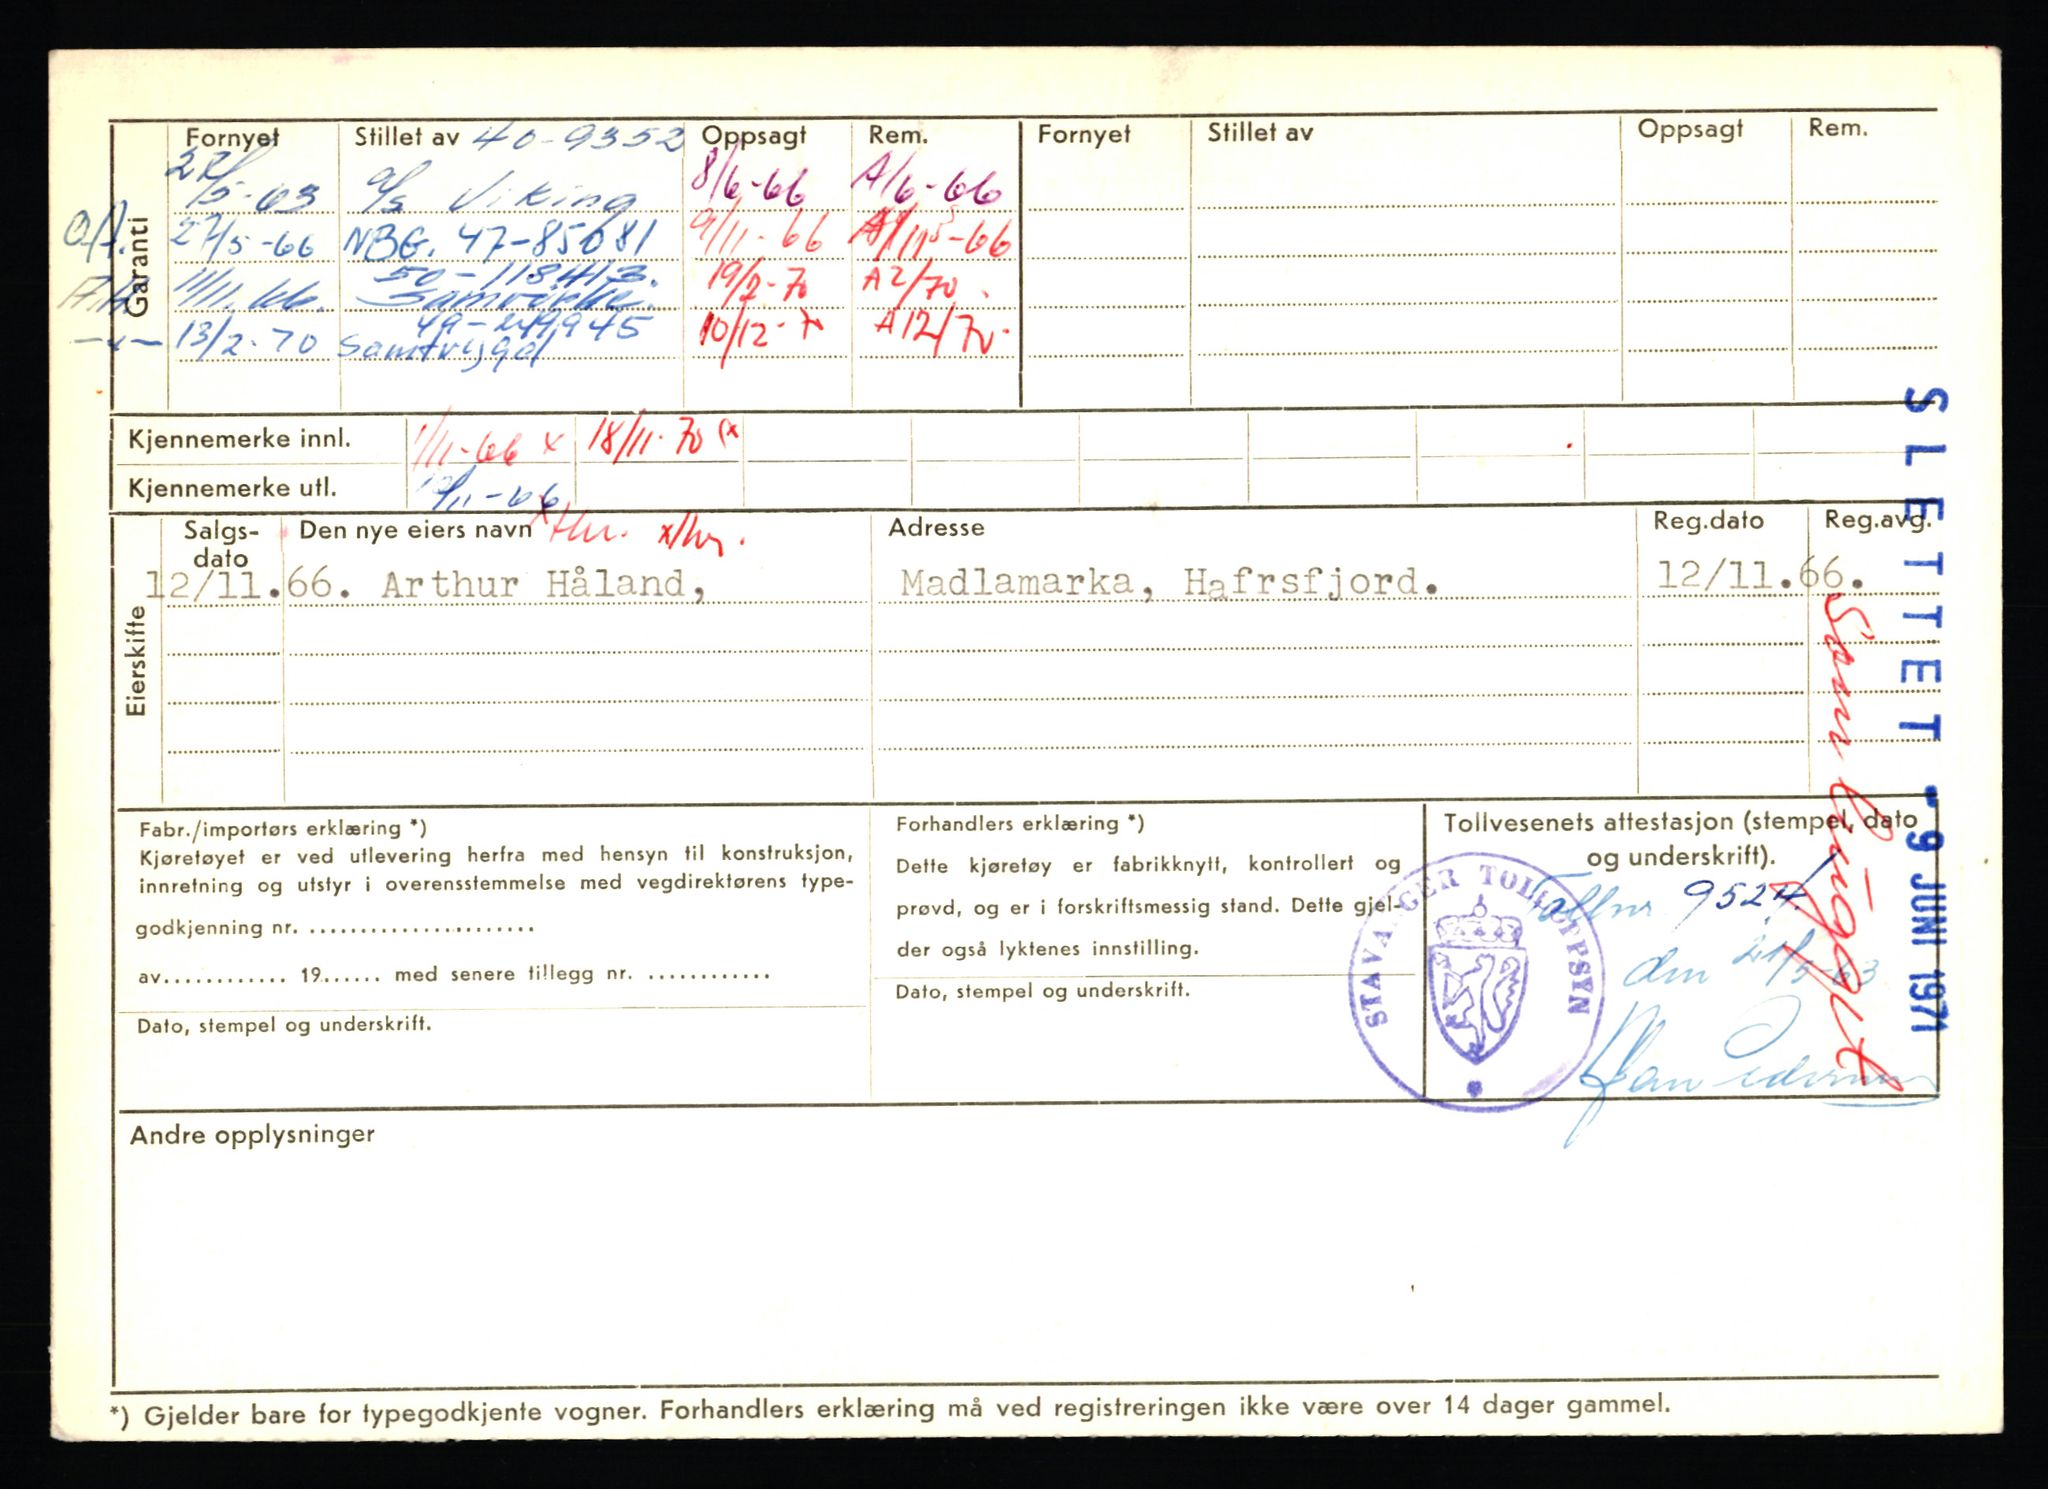 Fornyet Stillet av 40-9352 Oppsagt Rem. Fornyet Stillet av Oppsagt Rem.
Garanti
/5-63 a/s Viking 8/6-66 A/6-66
27/5-66 NBG. 47-85681 9/11-66
50-118413.
11/11.66. Samvirke. 19/2-70 A2/70.
49-
13/2-70 Samtrygd 10/12-7 A12/70
Kjennemerke innl. 1/11-66 x 18/11-70
Kjennemerke utl. /11-66
Eierskifte
Salgs-
dato Den nye eiers navn Adresse Reg.dato Reg.avg.
12/11.66. Arthur Håland, Madlamarka, Hafrsfjord. 12/11.66.
SLETTET - 9 JUNI 1971
Fabr./importørs erklæring *)
Kjøretøyet er ved utlevering herfra med hensyn til konstruksjon,
innretning og utstyr i overensstemmelse med vegdirektørens type-
godkjenning nr. ......................
av............ 19...... med senere tillegg nr. ............
Dato, stempel og underskrift.
Forhandlers erklæring *)
Dette kjøretøy er fabrikknytt, kontrollert og
prøvd, og er i forskriftsmessig stand. Dette gjel-
der også lyktenes innstilling.
Dato, stempel og underskrift.
Tollvesenets attestasjon (stempel, dato
og underskrift).
Tollnr 9524
den 21/5-63
STAVANGER TOLLOPPSYN
Andre opplysninger
*) Gjelder bare for typegodkjente vogner. Forhandlers erklæring må ved registreringen ikke være over 14 dager gammel.